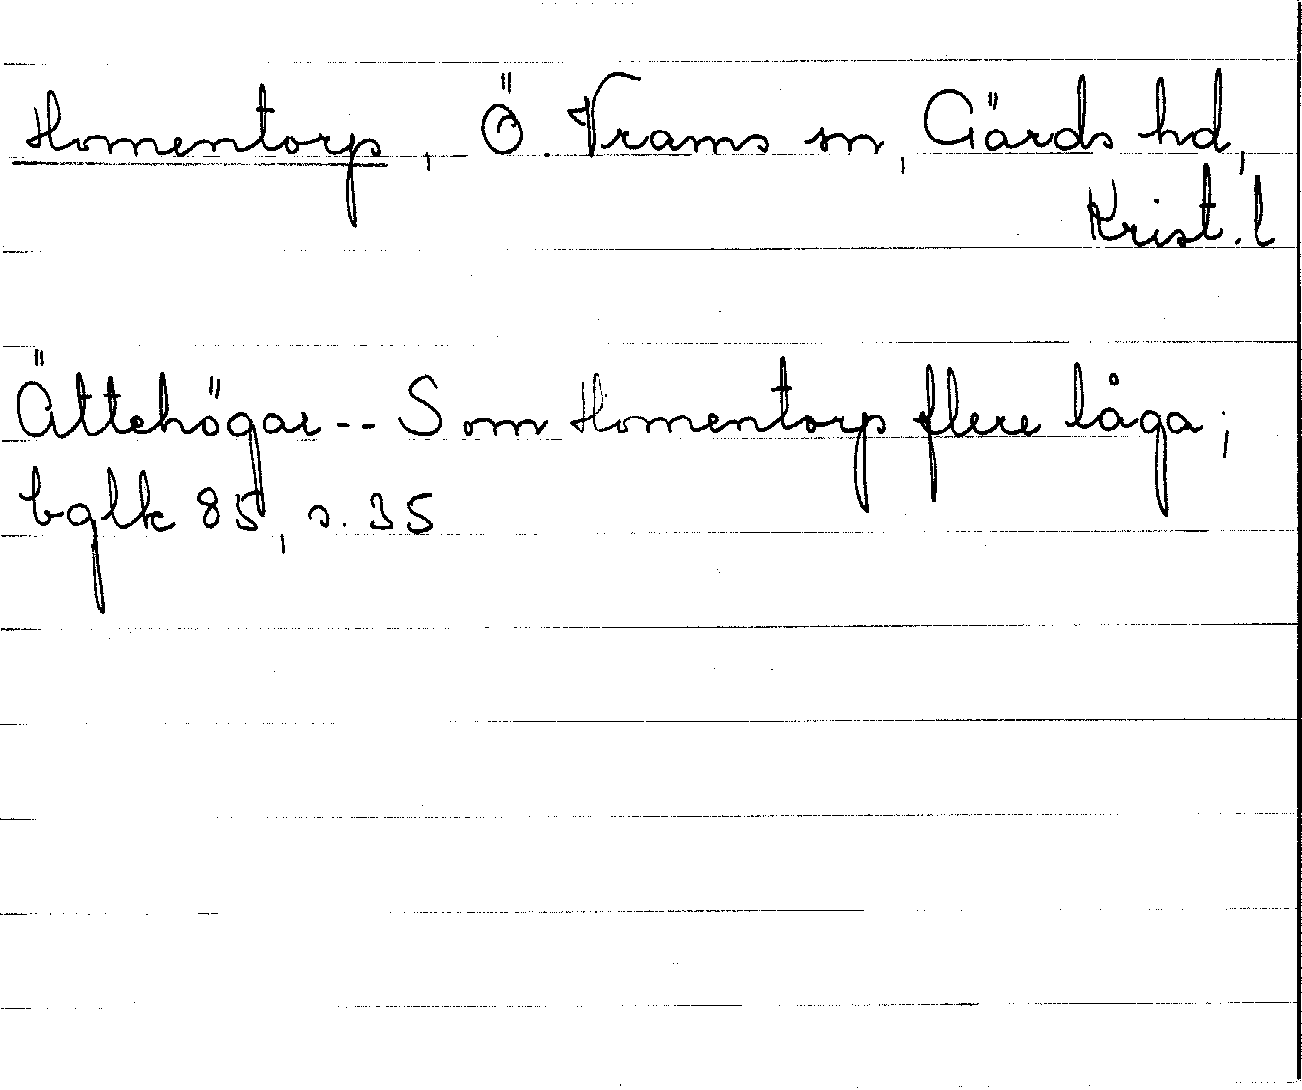 Homentorp, Ö. Vrams sn, Gärds hd,
Krist. l
Ättehögar -- Som Homentorp flere låga;
bglk 85, s. 35